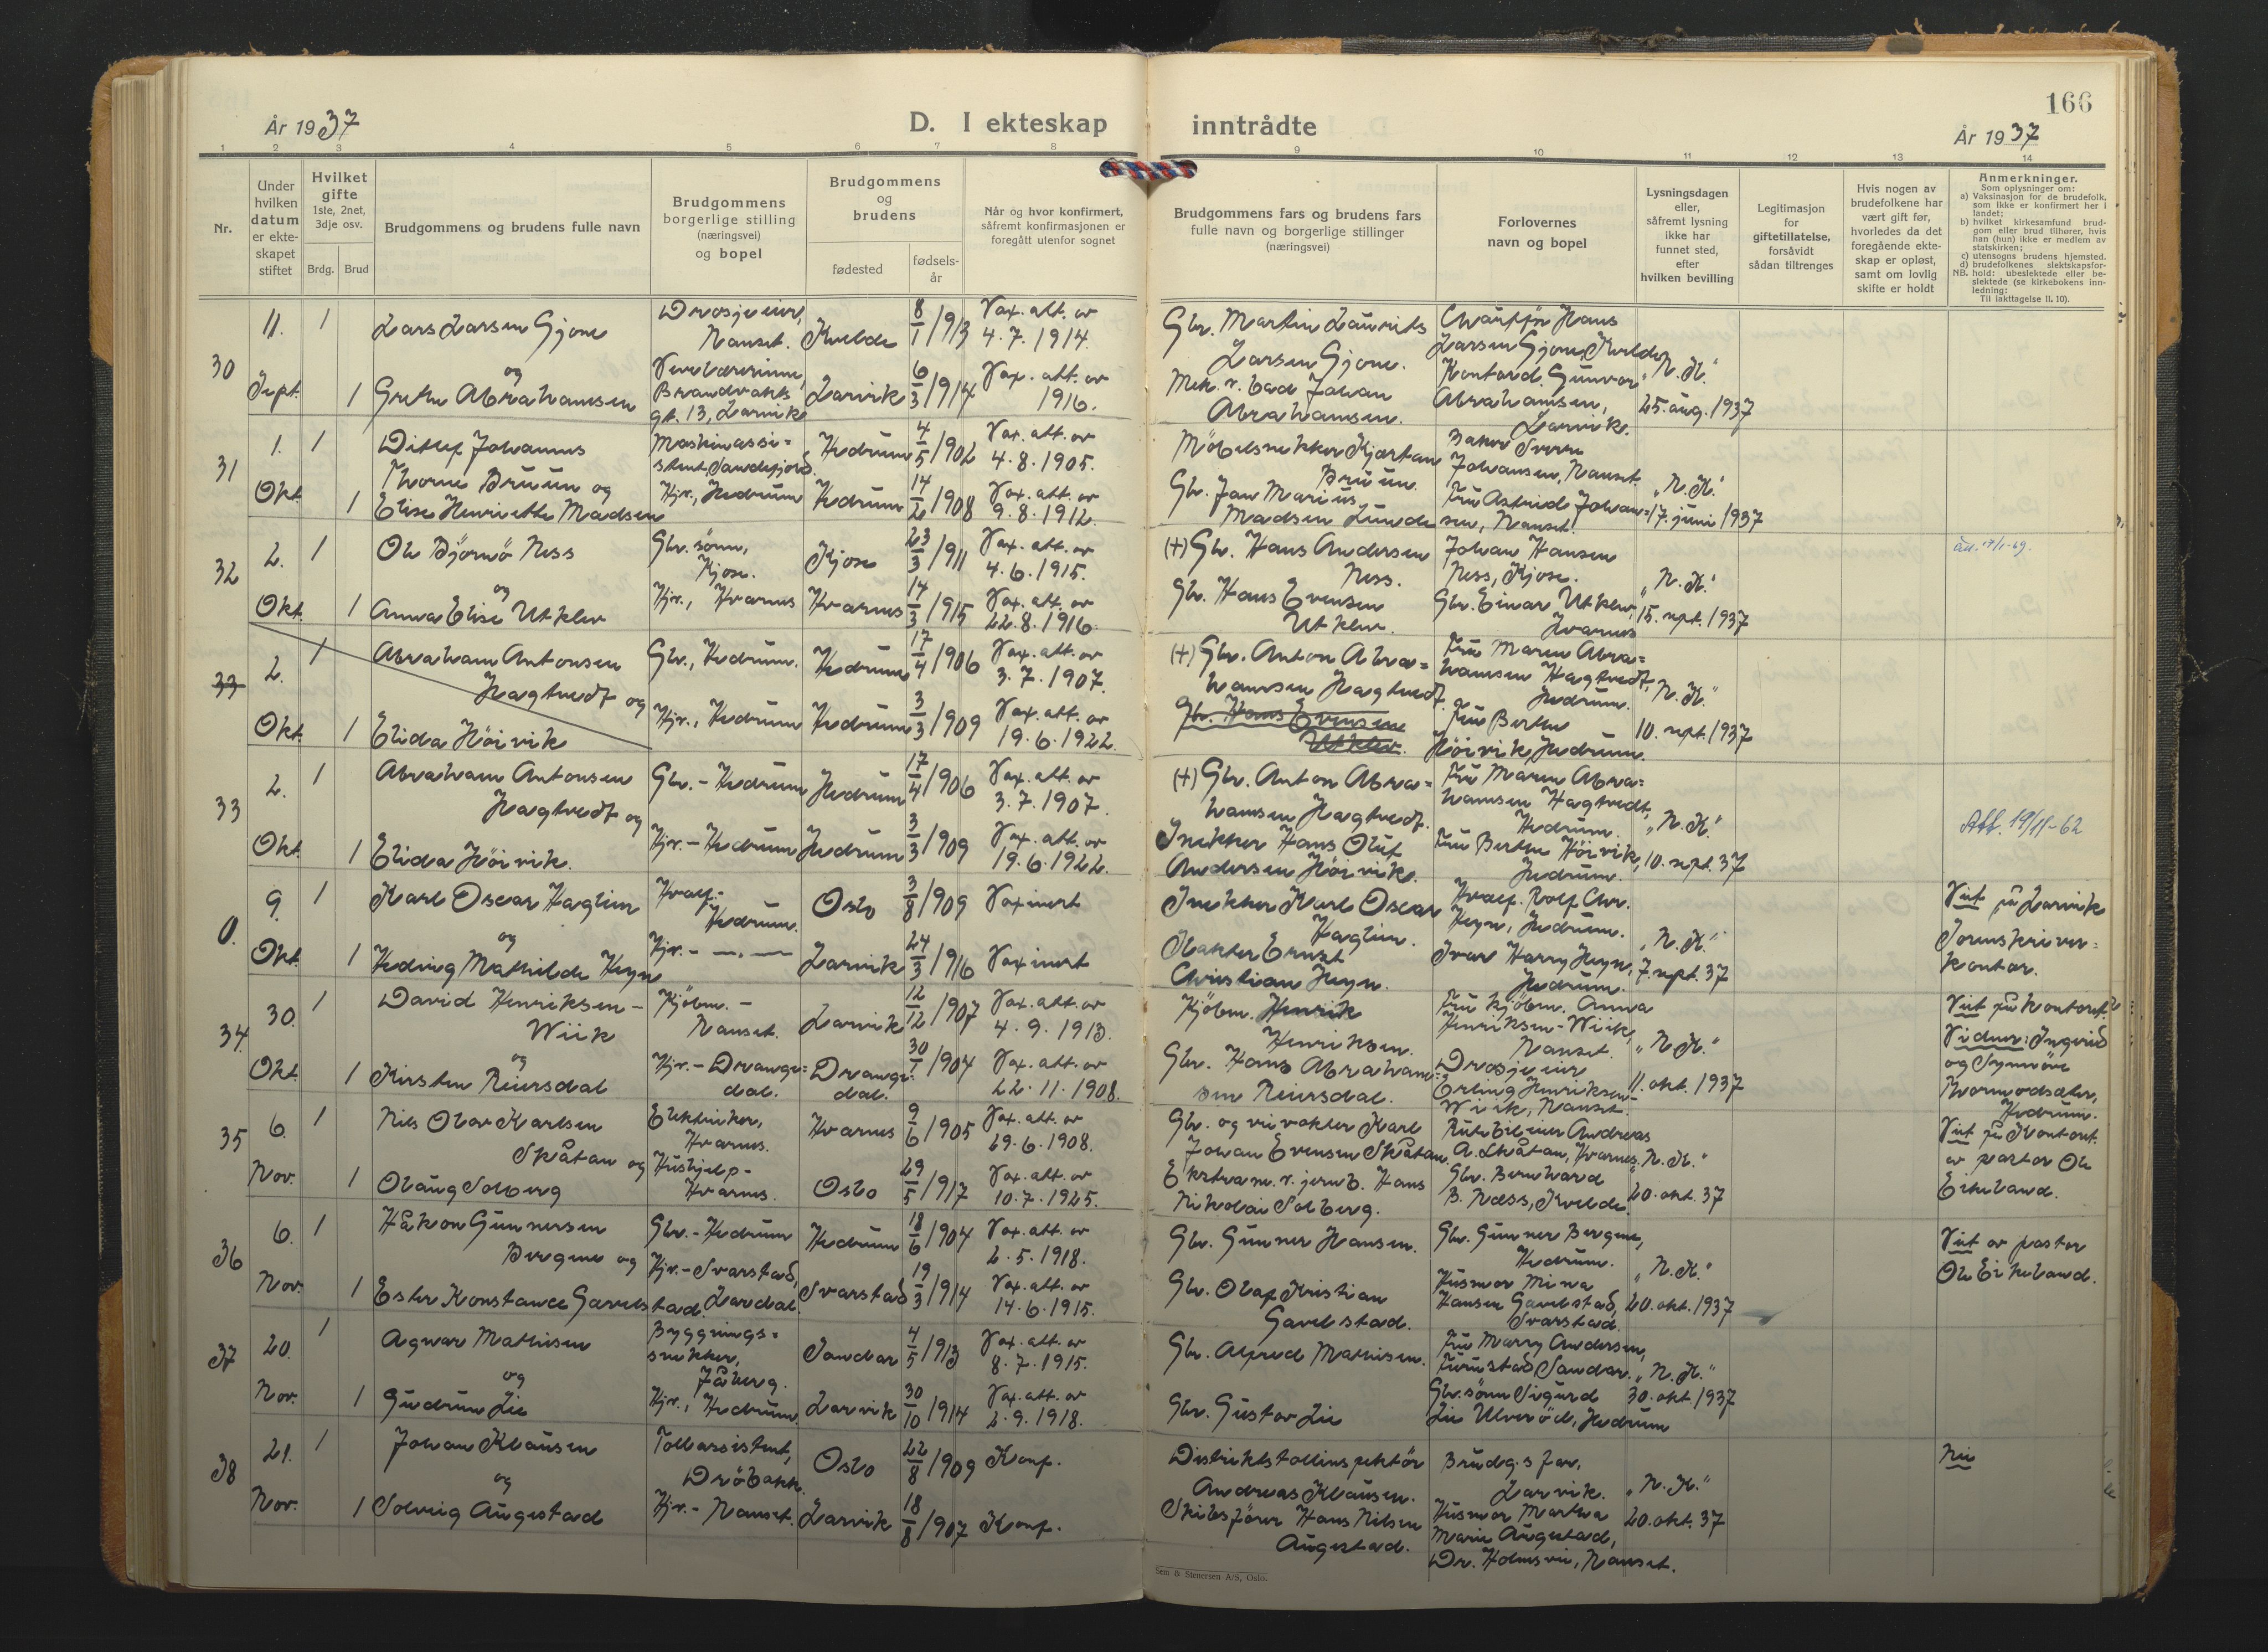 166
År 1937
D. I ekteskap inntrådte
År 1937
1 2 3 4 5 6 7 8 9 10 11 12 13 14
Nr.
Under hvilken datum er ekteskapet stiftet
Hvilket gifte
1ste, 2net, 3dje osv.
Brdg. Brud
Brudgommens og brudens fulle navn
Brudgommens borgerlige stilling (næringsvei) og bopel
Brudgommens og brudens
fødested
fødselsår
Når og hvor konfirmert, såfremt konfirmasjonen er foregått utenfor sognet
Brudgommens fars og brudens fars fulle navn og borgerlige stillinger (næringsvei)
Forlovernes navn og bopel
Lysningsdagen eller, såfremt lysning ikke har funnet sted, efter hvilken bevilling
Legitimasjon for giftetillatelse, forsåvidt sådan tiltrenges
Hvis nogen av brudefolkene har vært gift før, hvorledes da det foregående ekteskap er opløst, samt om lovlig skifte er holdt
Anmerkninger.
Som oplysninger om:
a) Vaksinasjon for de brudefolk, som ikke er konfirmert her i landet;
b) hvilket kirkesamfund brudgom eller brud tilhører, hvis han (hun) ikke er medlem av statskirken;
c) utensogns brudens hjemsted.
d) brudefolkenes slektskapsforhold: ubeslektede eller beslektede (se kirkebokens innledning:
NB.
Til iakttagelse II. 10).
30
11. Sept.
1
Lars Larsen Gjone
og
1 Grethe Abrahamsen
Drosjeeier, Nanset.
Kvelde
8/1 1913
Vax. att. av 4. 7. 1914.
Brandvakts gt. 13, Larvik
Larvik
6/3 1914
Vax. att. av 1916.
Gbr. Martin Laurits Larsen Gjone.
Abrahamsen.
Hans Larsen Gjone, Kvelde
Kontord. Gunvor Abrahamsen, Larvik.
"N. K."
25. aug. 1937
31
1. Okt.
1
Ditlef Johannes Thorne Bruun og
1 Elise Henriette Madsen
Maskinassistent, Sandefjord.
Hedrum
4/5 1902
Vax. att. av 4. 8. 1905.
Hjv., Hedrum
Hedrum
14/2 1908
Vax. att. av 9. 8. 1912.
Möbelsnekker Kjartan Bruun.
Gbr. Jan Marius Madsen Lunde
Baker Sverre Johansen, Nanset.
Fru Astrid Johansen, Nanset.
"N. K."
17. juni 1937
32
2. Okt.
1
Ole Björnö Ness
og
1 Anna Elise Utklev
Gbr. sönn, Kjose.
Kjose
23/3 1911
Vax. att. av 4. 6. 1915.
Hjv., Hvarnes
Hvarnes
14/3 1915
Vax. att. av 22. 8. 1916.
(+) Gbr. Hans Andersen Ness.
Gbr. Hans Evensen Utklev.
Johan Hansen Ness, Kjose.
Gbr. Einar Utklev, Hvarnes
"N. K."
15. sept. 1937
33
2. Okt.
1
Abraham Antonsen Hagtvedt og
1 Elida Höivik
Gbr., Hedrum.
Hedrum
17/4 1906
Vax. att. av 3. 7. 1907.
Hjv., Hedrum
Hedrum
3/3 1909
Vax. att. av 19. 6. 1922.
(+) Gbr. Anton Abrahamsen Hagtvedt.
Gbr. Hans Evensen Utklev.
Fru Maren Abrahamsen Hagtvedt, Hedrum.
Fru Berthe Höivik, Hedrum.
"N. K."
10. sept. 1937
33
2. Okt.
1
Abraham Antonsen Hagtvedt og
1 Elida Höivik.
Gbr. - Hedrum
Hedrum
17/4 1906
Vax. att. av 3. 7. 1907.
Hjv. - Hedrum
Hedrum
3/3 1909
Vax. att. av 19. 6. 1922.
(+) Gbr. Anton Abrahamsen Hagtvedt.
Snekker Hans Oluf Andersen Höivik.
Fru Maren Abrahamsen Hagtvedt, Hedrum.
Fru Berthe Höivik, Hedrum.
"N. K."
10. sept. 37
Att. 19/11-62
0.
9. Okt.
1
Karl Oscar Haglien
og
1 Hedvig Mathilde Heyn
Hvalf. - Hedrum.
Oslo
3/8 1909
Vaxinert
Hjv. - — " —
Larvik
24/3 1916
Vaxinert
Snekker Karl Oscar Haglien.
Ernst Christian Heyn.
Hvalf. Rolf Chr. Heyn, Hedrum.
Ivar Harry Heyn, Hedrum.
"N. K."
7. sept. 37
Viet på Larvik Sorenskriverkontor.
34.
30. Okt.
1
David Henriksen-Wiik
og
1 Kirsten Reiersdal
Kjöbm. - Nanset.
Larvik
12/12 1907
Vax. att. av 4. 9. 1913.
Hjv. - Drangedal.
Drangedal.
30/1 1904
Vax. att. av 22. 11. 1908.
Kjöbm. Henrik Henriksen.
Gbr. Hans Abrahamsen Reiersdal.
Fru kjöbm. Anna Henriksen-Wiik, Nanset.
Drosjeeier Erling Henriksen-Wiik, Nanset.
"N. K."
11. okt. 1937
Viet på kontoret.
Vidner: Ingerid og Synnöve Thormodsæter, Hedrum.
35
6. Nov.
1
Nils Olav Karlsen Skåtan og
1 Olaug Solberg
Elektriker, Hvarnes.
Hvarnes
9/6 1905
Vax. att. av 29. 6. 1908.
Hushjelp - Hvarnes.
Oslo
29/5 1917
Vax. att. av 10. 7. 1925.
Gbr. og veivokter Karl Johan Evensen Skåtan.
Ekstram. v. jernb. Hans Nikolai Solberg.
Rutebileier Andreas A. Skåtan, Hvarnes.
Gbr. Bernhard B. Næss, Kvelde.
"N. K."
20. okt. 37
Viet på Kontoret. av pastor Ole Eikeland.
36
6. Nov.
1
Håkon Gunnersen Bergene og
1 Ester Konstance Gavelstad
Gbr. - Hedrum
Hedrum
18/6 1904
Vax. att. av 2. 5. 1918.
Hjv. - Svarstad, Lardal.
Svarstad
19/3 1914
Vax. att. av 14. 6. 1915.
Gbr. Gunner Hansen.
Gbr. Olaf Kristian Gavelstad.
Gbr. Gunner Bergene, Hedrum.
Husmor Mina Hansen Gavelstad, Svarstad.
"N. K."
20. okt. 1937
Viet av pastor Ole Eikeland.
37
20. Nov.
1
Agnar Mathisen
og
1 Gudrun Lie
Bygningssnekker, Jåberg.
Sandar
4/5 1913
Vax. att. av 8. 7. 1915.
Hjv., Hedrum
Larvik
30/10 1914
Vax. att. av 2. 9. 1918.
Gbr. Alfred Mathisen.
Gbr. Gustav Lie
Fru Marry Andersen, Furustad, Sandar.
Gbr. sönn Sigurd Lie Ulveröd, Hedrum
"N. K."
30. okt. 1937
38
21. Nov.
1
Johan Klausen
og
1 Solveig Augestad
Tollassistent, Dröbakk.
Oslo
22/8 1909
Konf.
Hjv. - Nanset.
Larvik
18/8 1907
Konf.
Distriktstollinspektör Andreas Klausen.
Skibsförer Hans Nilsen Augestad.
Brudg.s far, Larvik.
Husmor Martha Marie Augestad, Dr. Holmsvei, Nanset.
"N. K."
20. okt. 37
Nei
Sem & Stenersen A/S, Oslo.